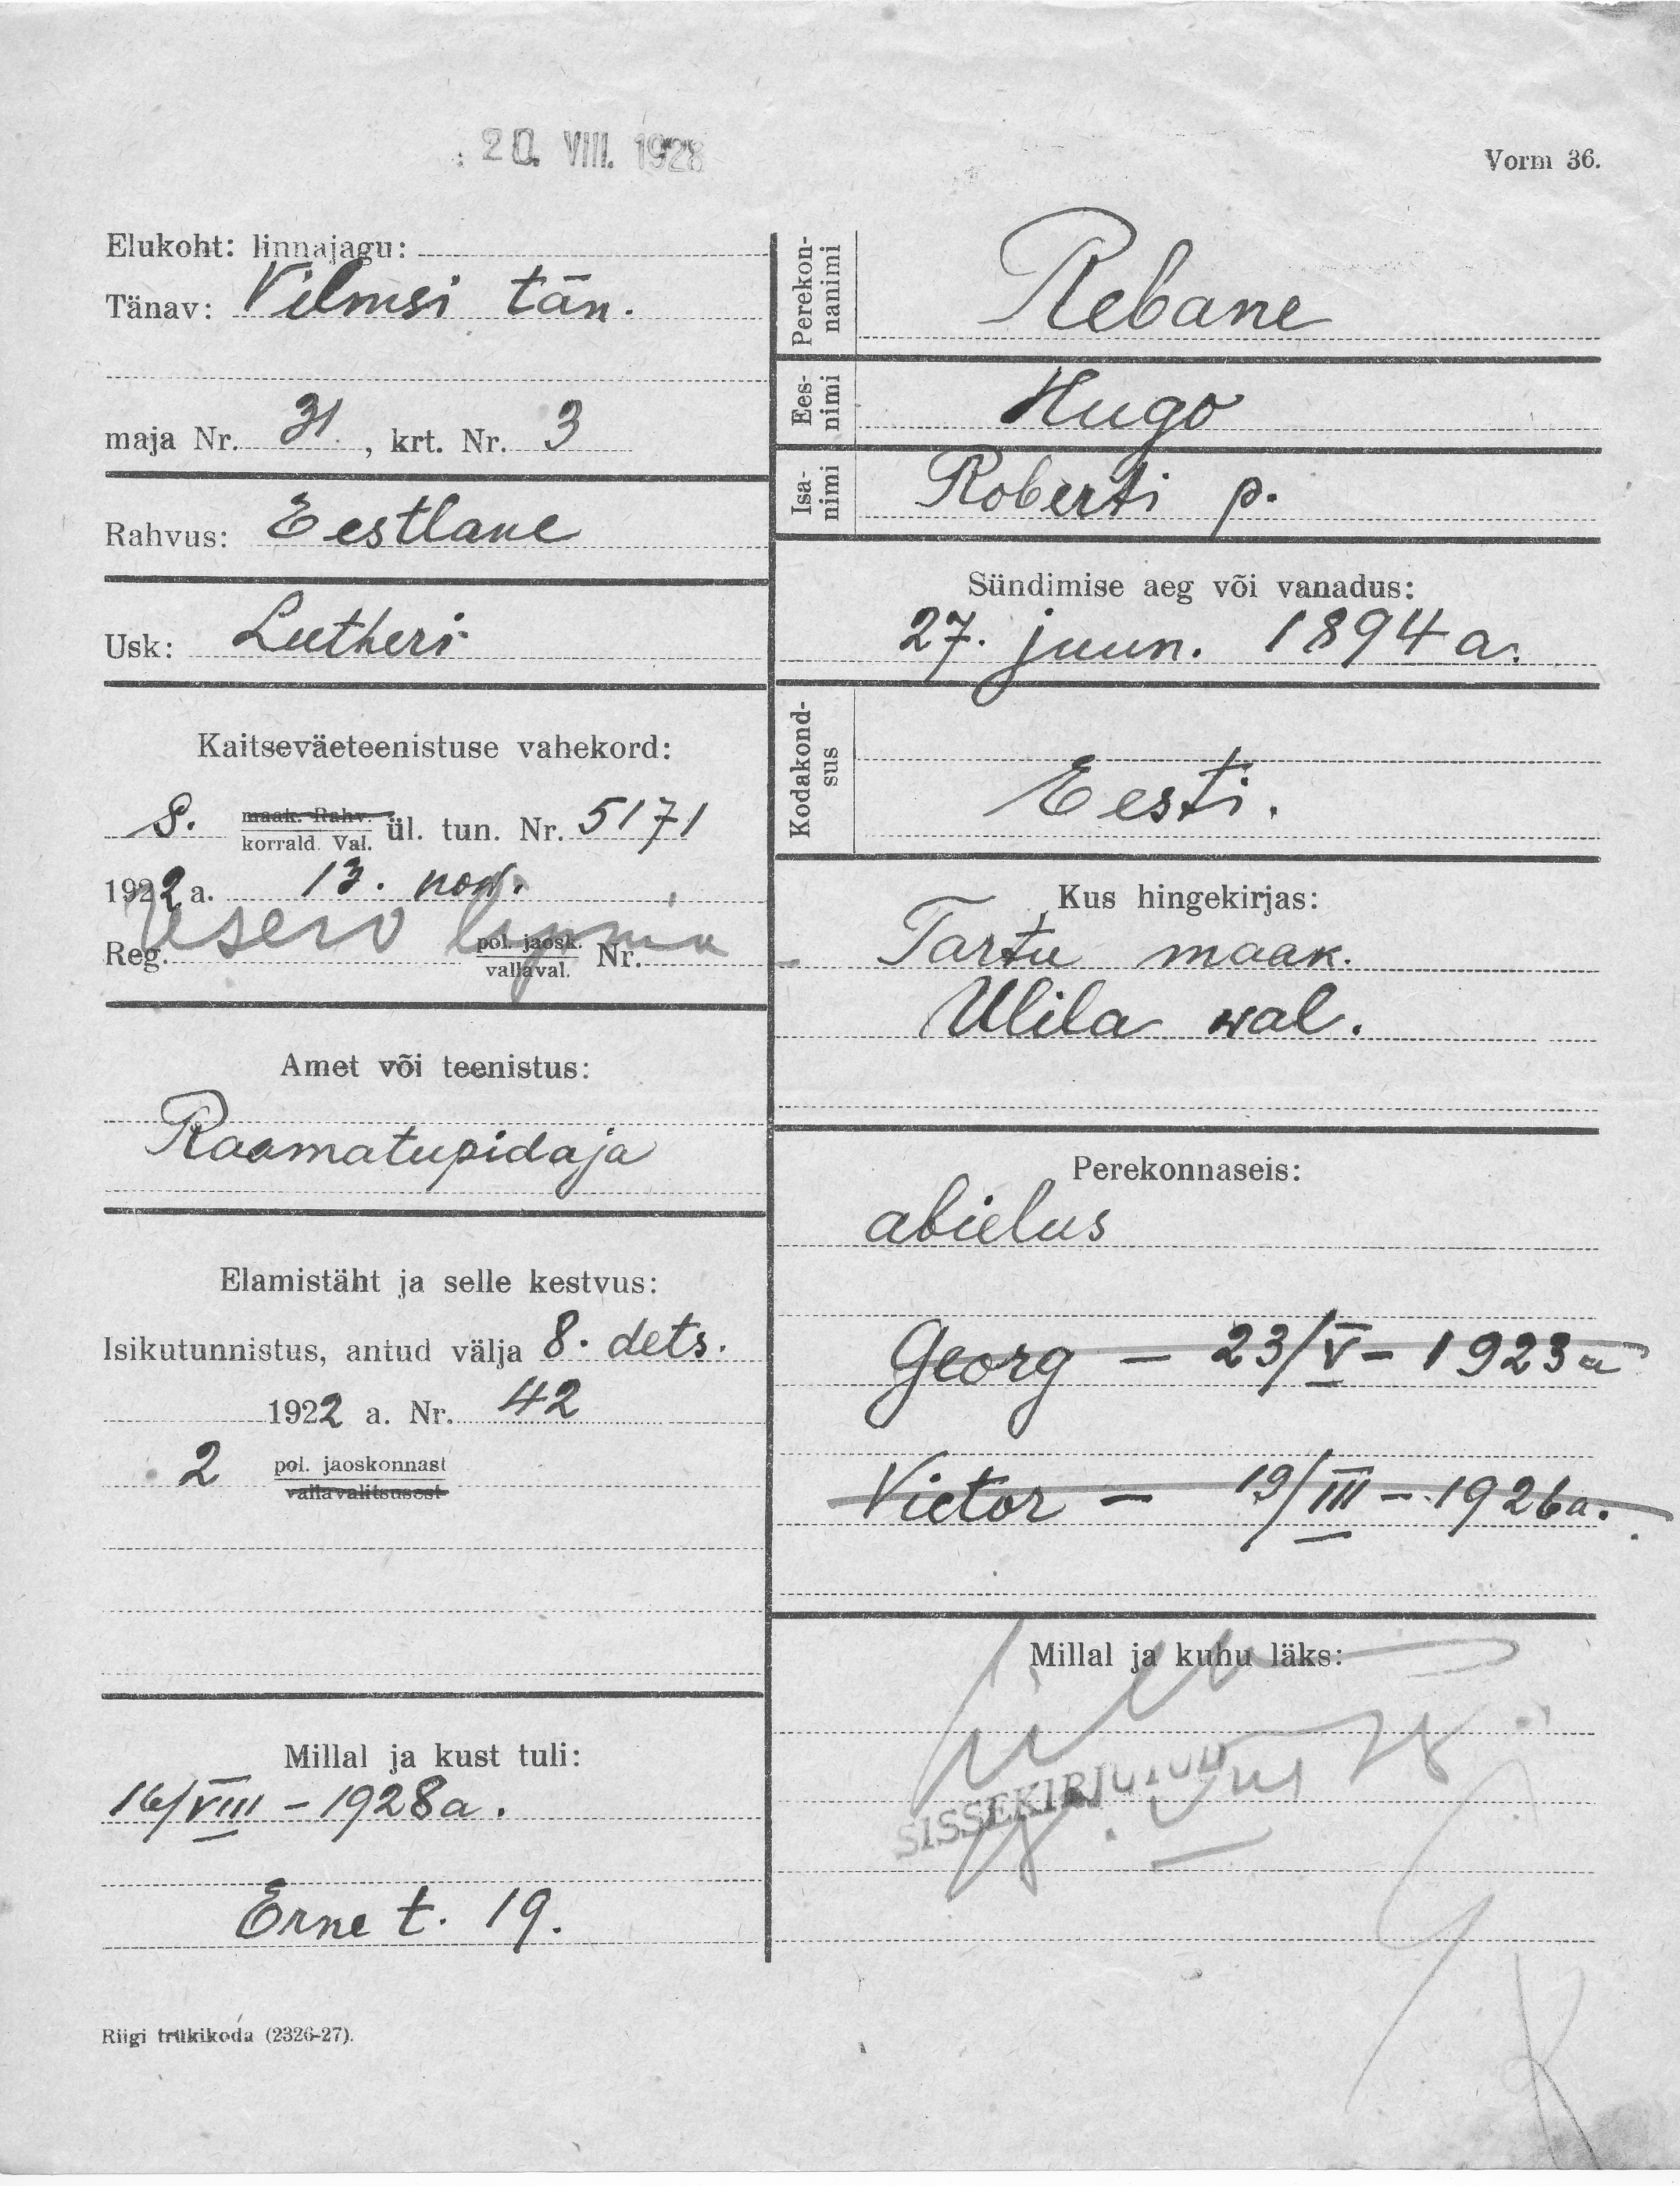 20. VIII. 1928
Vorm 36.
Elukoht: linnajagu:
Tänav: Vilmsi tän.
maja Nr. 31, krt. Nr. 3
Rahvus: Eestlane
Usk: Lutheri
Kaitseväeteenistuse vahekord:
8. maak. Rahv. korrald. Val. ül. tun. Nr. 5171
1922 a. 13. nov.
Reg. pol. jaosk. vallaval. Nr.
Amet või teenistus:
Raamatupidaja
Elamistäht ja selle kestvus:
Isikutunnistus, antud välja 8. dets.
1922 a. Nr. 42
2 pol. jaoskonnast
vallavalitsusest
Millal ja kust tuli:
16/VIII – 1928 a.
Erne t. 19.
Riigi trükikoda (2326-27).
Perekon-
nanimi
Rebane
Ees-
nimi
Hugo
Isa-
nimi
Roberti p.
Sündimise aeg või vanadus:
27. juun. 1894 a.
Kodakond-
sus
Eesti.
Kus hingekirjas:
Tartu maak.
Ulila wal.
Perekonnaseis:
abielus
Georg – 23/V – 1923 a
Victor – 19/III – 1926 a.
Millal ja kuhu läks:
SISSEKIRJUTUD